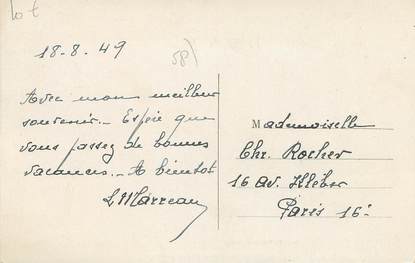 lot
18-8-49
58)
Avec mon meilleur
souvenir.- Espère que
vous passez de bonnes
vacances.- A bientôt
Mademoiselle
Chr. Rocher
16 av. Kléber
Paris 16.